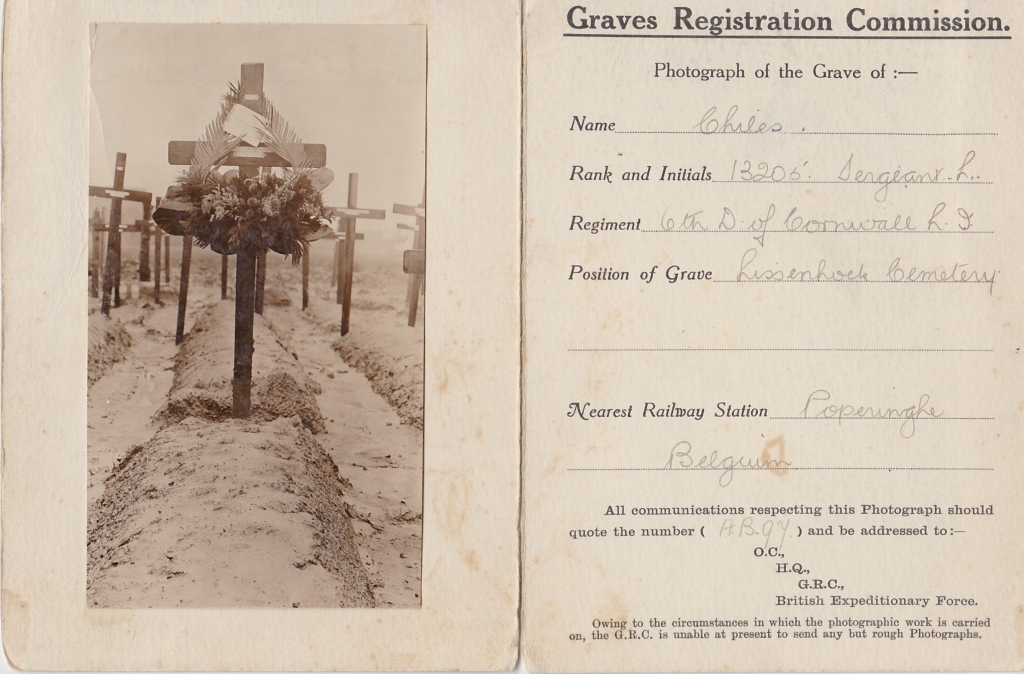 Graves Registration Commission.
Photograph of the Grave of :—
Name Chiles.
Rank and Initials 13205. Sergeant. L.
Regiment 6th D. of Cornwall L. I
Position of Grave Lissenhock Cemetery
Nearest Railway Station Poperinghe
Belguim
All communications respecting this Photograph should
quote the number ( A.B.97. ) and be addressed to:—
O.C.,
H.Q.,
G.R.C.,
British Expeditionary Force.
Owing to the circumstances in which the photographic work is carried
on, the G.R.C. is unable at present to send any but rough Photographs.